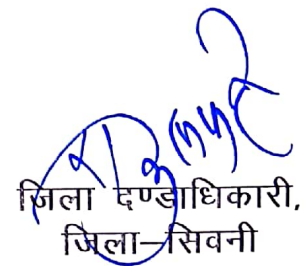 जिला दण्डाधिकारी,
जिला–सिवनी